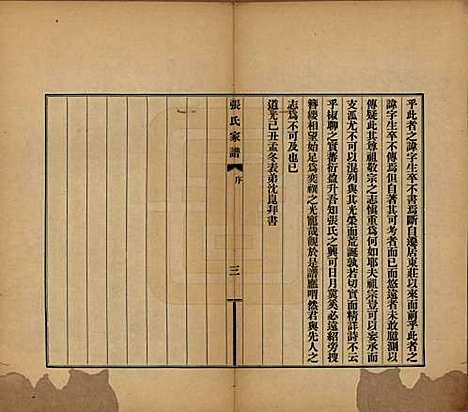 乎此者之諱字生卒不書焉斷自遷居東莊以來而前乎此者之
諱字生卒不傳焉然此特自其可考者而已而悠遠者未敢臆測以
傳疑此其尊祖敬宗之志慎重為何如耶夫祖宗豈可以妄承而
支派尤不可以混列與其光榮而荒誕孰若切實而精詳詩不云
乎椒聊之實蕃衍盈升吾知張氏之興可日月冀奚必遠紹旁搜
簪纓相望始足為奕禩之光寵哉觀於是譜應喟然君與先人之
志為不可及也已
道光己丑孟冬表弟沈崑拜書
張氏家譜
序
三